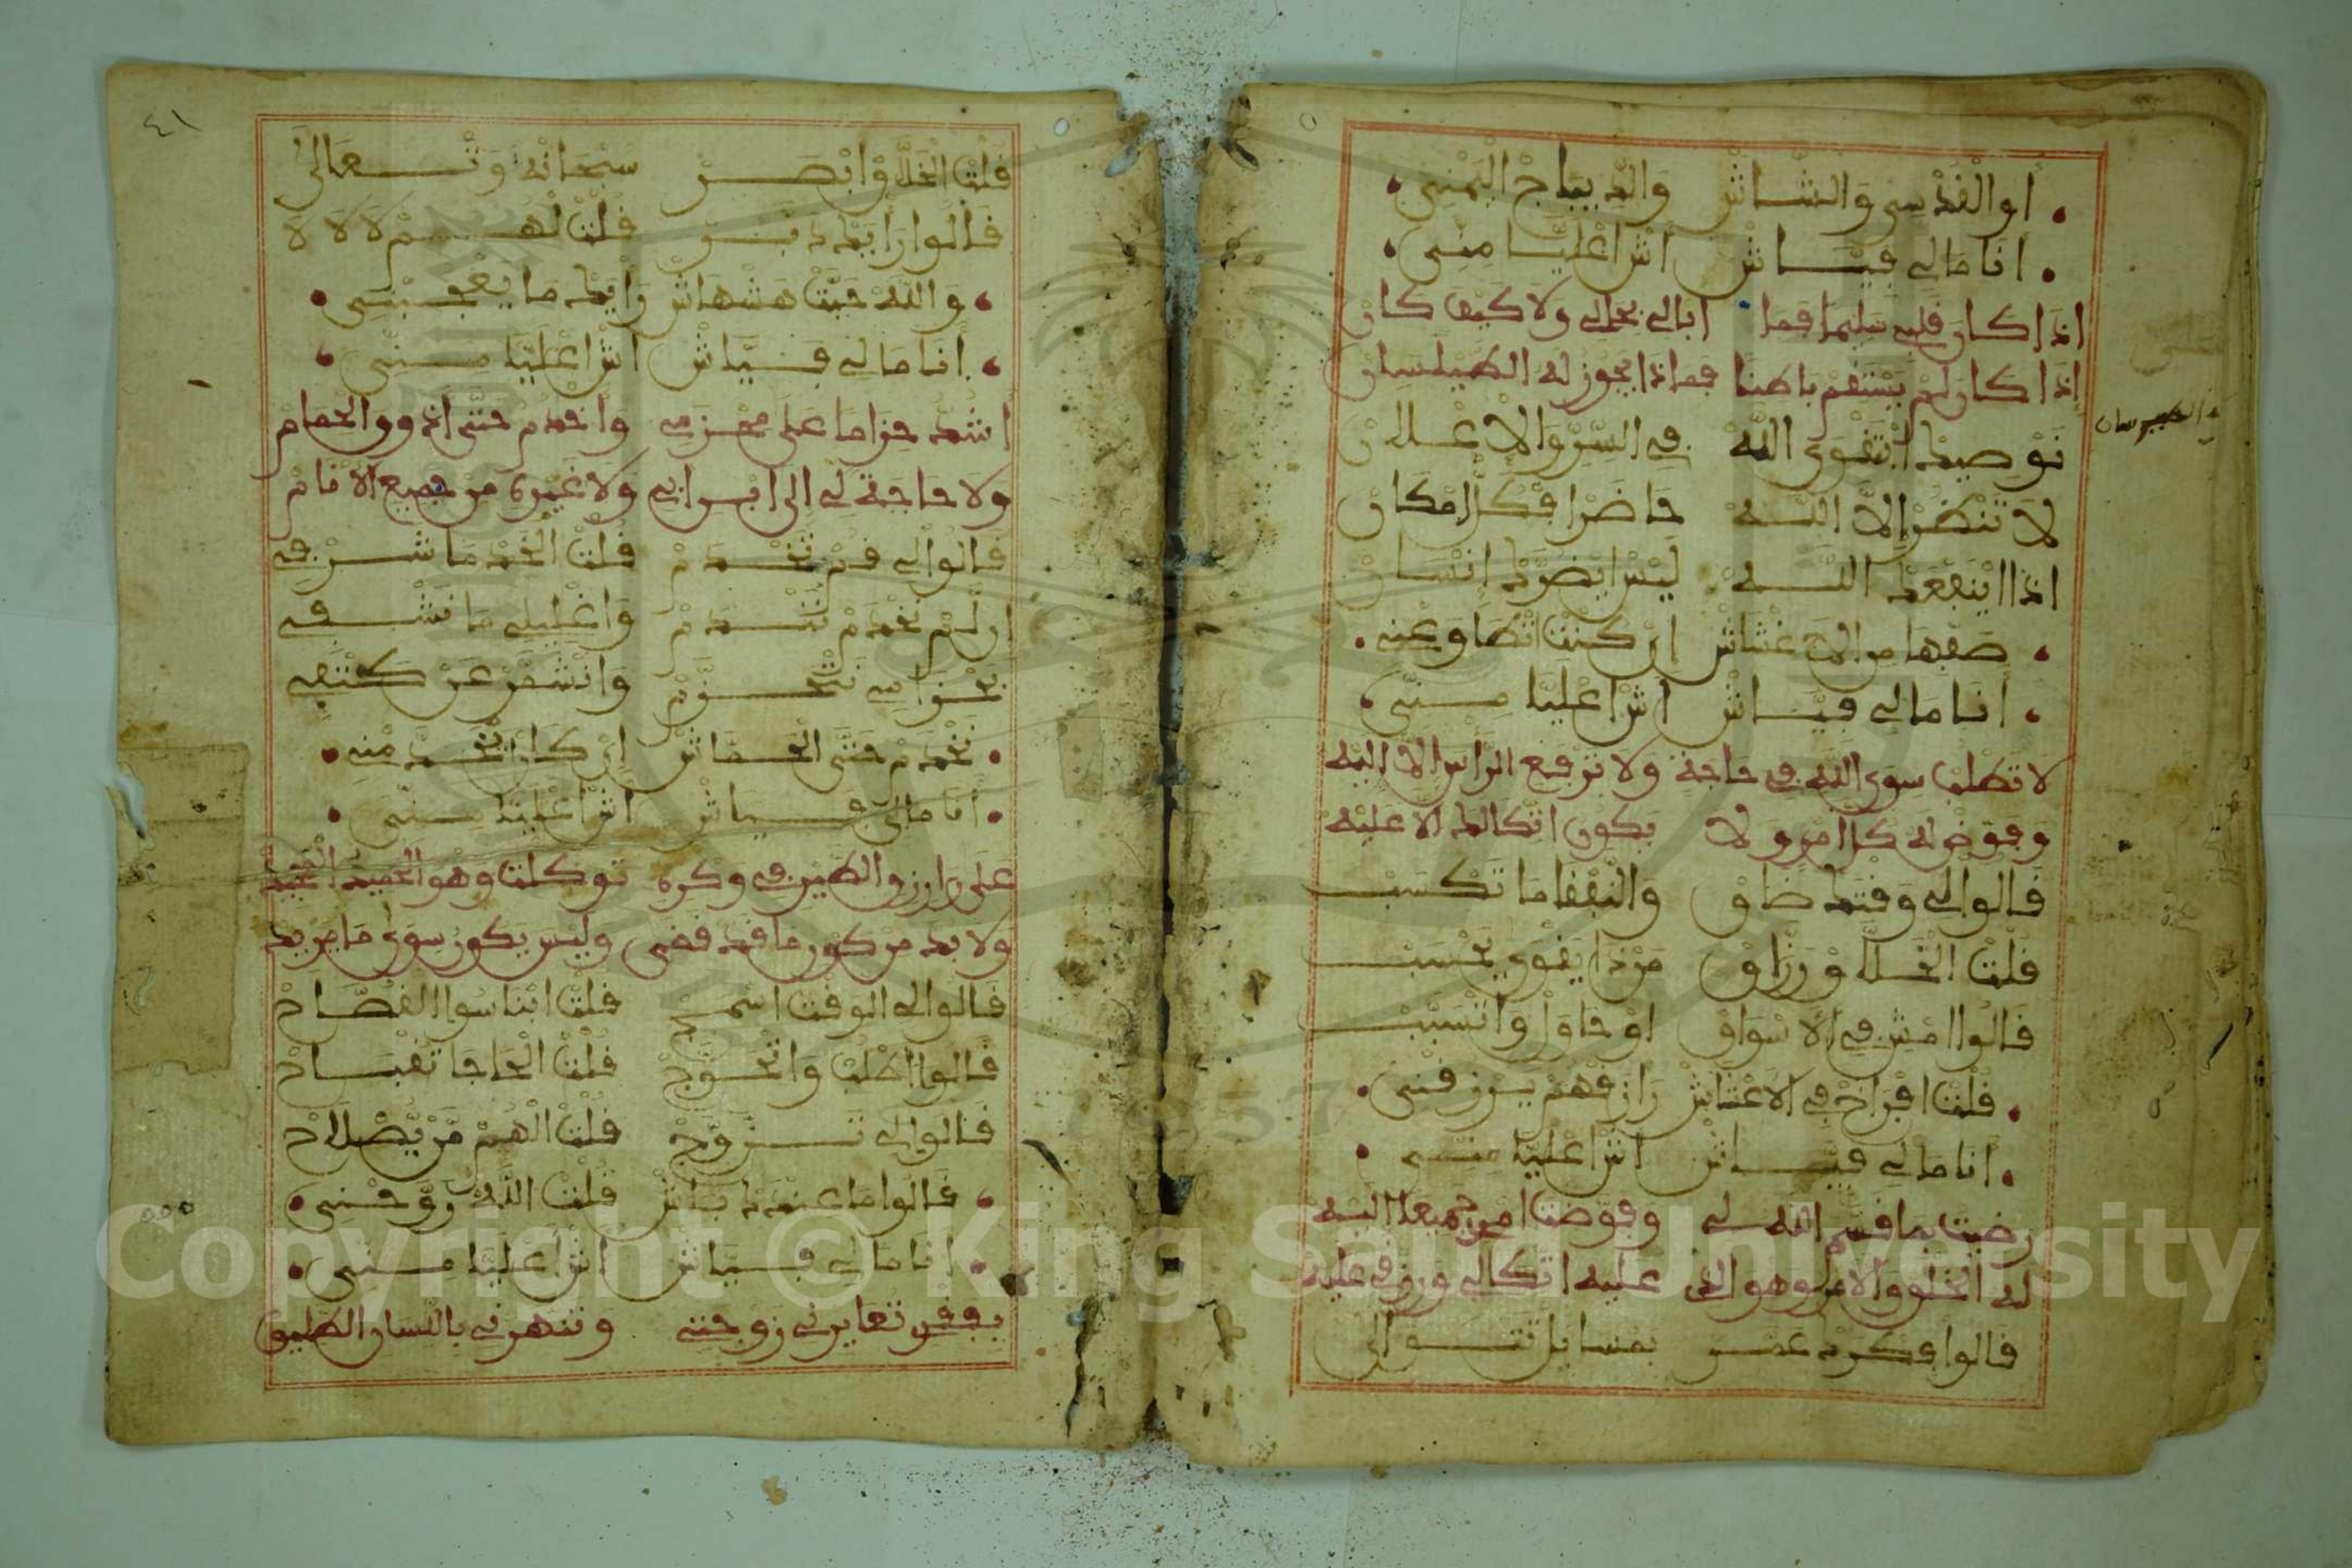 أو القدسي والشاش والديباج اليمني
أنا مالي فياش أش اعليا مني
اذا كان قلبي سليما فما ابالي بحالي ولا كيف كان
إذا كان لم يستقم باطنا فماذا يجوز له الطيلسان
نوصيك ابتقوى الله في السر والاعلان
لا تنظر إلا الله حاضرا فكل امكان
اذا اينفعك الله ليس ايضرك إنسان
صفها من الغشاش إن كنت اتطاوعني
أنا مالي فياش أش اعليا مني
لا تطلب سوى الله في حاجة ولا ترفع الراس الا اليه
وفوض له كل أمر ولا يكون اتكالك الا عليه
قالوا لي وقتك ضاق والنفقا ما تكسب
قلت الخلاق ورزاق من ذا يقوى يحسب
قالوا امش في الاسواق او حاول واتسبب
قلت افراخ في الاعشاش رازقهم يرزقني
أنا مالي فياش أش اعليا مني
رضيت بما قسم الله لي وفوضت امري جميعا اليه
له الخلق والامر وهو الذي عليه اتكالي ورزقي عليه
قالوا فكرك عمر بمسايل تتوالى
الطيلسان
٤١
قلت الخلاق وابصر سبحانه وتعالى
قالوا رايك دبر قلت لهم لا لا لا
والله حبت هشهاش رأيك ما يعجبني
أنا مالي فياش أش اعليا مني
اشد حزاما على محزمي واخدم حتى اذوق الحمام
ولا حاجة لي الى ابن ابي ولا غيره من جميع الانام
قالوا لي قم تخدم قلت الخدما شرفي
إن لم نخدم نندم واغليلي ما نشفي
بحزامي نتحزم وانشمر عن كتفي
نخدم حتى الخفاش إن كان نخدمني
أنا مالي فياش أش اعليا مني
على رازق الطير في وكره توكلت وهو الحميد المجيد
ولا بد من كون ما قد قضى وليس يكون سوى ما يريد
قالوا لي الوقت اسمج قلت ابناسوا القصاح
قالوا اطلب واتحوج قلت الحاجا تقباح
قالوا لي تزوج قلت الهم من يصلاح
قالوا ما عندك باش قلت الله زوجني
أنا مالي فياش أش اعليا مني
بفقري تعايرني زوجتي وتنهرني باللسان الطليق